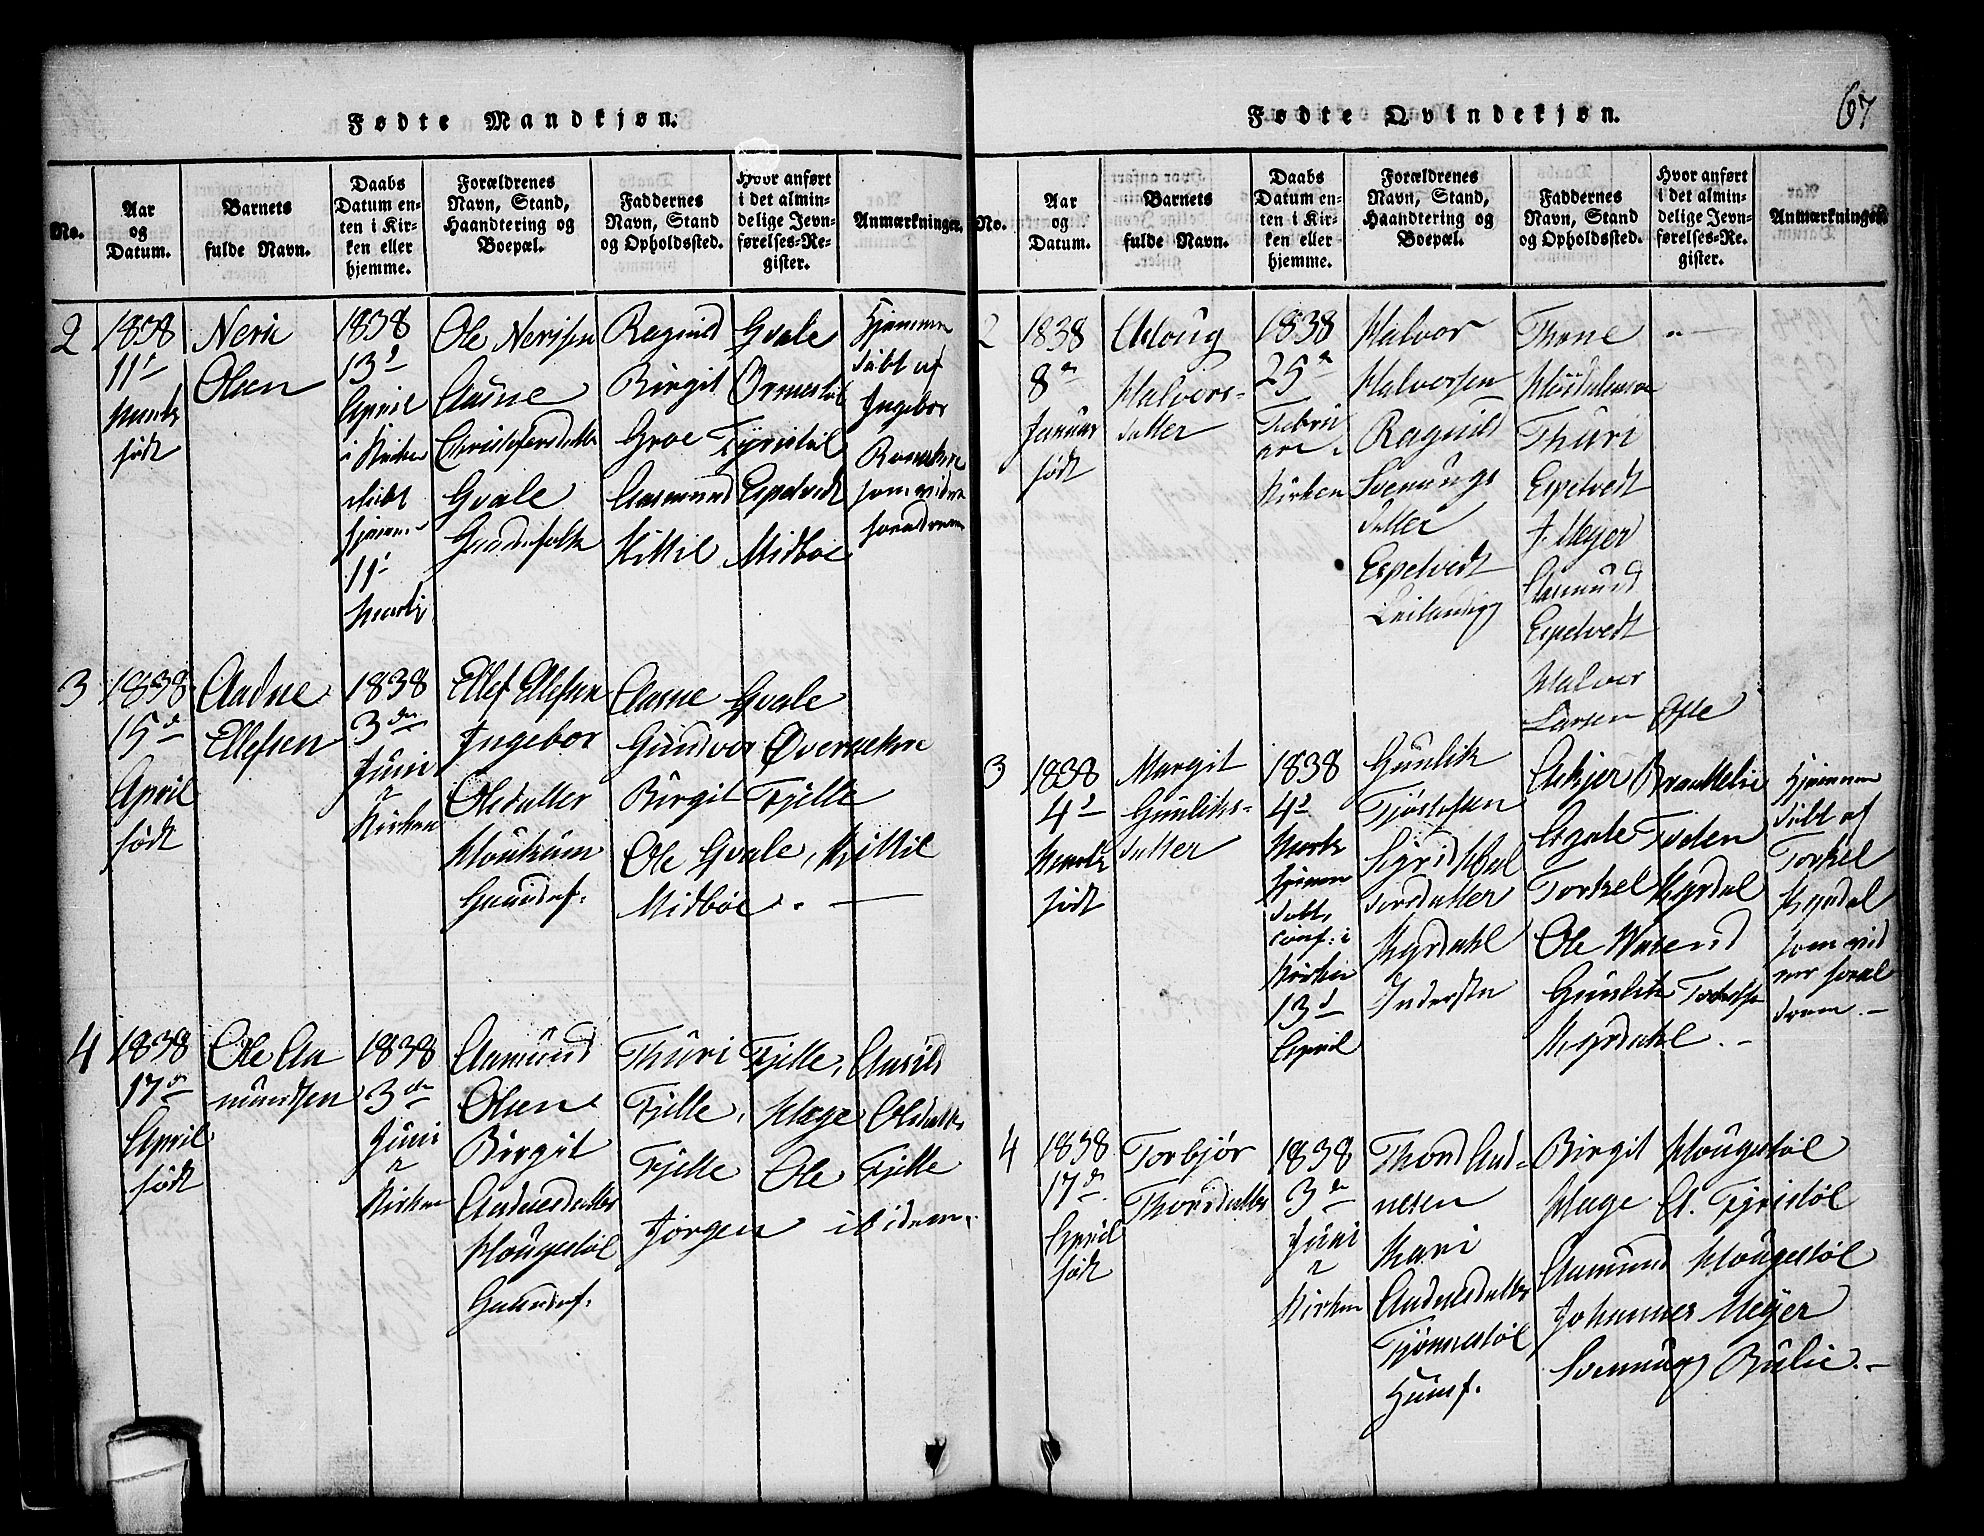 Fødte Mandkjøn.
No.
Aar
og
Datum.
Barnets
fulde Navn.
Daabs
Datum en-
ten i Kir-
ken eller
hjemme.
Forældrenes
Navn, Stand,
Haandtering og
Boepæl.
Faddernes
Navn, Stand
og Opholdssted.
Hvor anført
i det almin-
delige Jevn-
førelses-Re-
gister.
Anmærkninger.
2
1838
11te
Marts
født
Neri
Olsen
1838
13d
April
i Kirken
døbt
hjem-
11te
Marts
Ole Nerisen
Aane
Christophersdatter
Gvale
Gaardmfolk
Ragnild Gvale
Birgit Ormestøl
Groe Fyristøl
Aasmund Espelvedt
Kittil Midbøe
Hjemme
døbt af
Ingebor
som viden
forældrene
3
1838
15de
April
født
Aadne
Ellefsen
1838
3die
Juni
i
Kirken
Ellef Ellefsen
Ingebor
Olsdatter
Houkum
Gaardmf.
Aasne Gvale
Gundvor Øvernekre
Birgit Fjelle
Ole Gvale, Kittil
Midbøe. —
4
1838
17de
April
født
Ole Aa
mundsen
1838
3die
Juni
i
Kirken
Aamund
Olsen
Birgit
Aadnesdatter
Hougestøl
Gaardmf.
Thuri Fjelle, Aasild
Fjelle, Hæge Olsdatter
Fjelle Ole Fjelle
Jørgen ibidem.
Fødte Qvindekjøn.
67
No.
Aar
og
Datum.
Barnets
fulde Navn.
Daabs
Datum en-
ten i Kir-
ken eller
hjemme.
Forældrenes
Navn, Stand,
Haandtering og
Boepæl.
Faddernes
Navn, Stand
og Opholdssted.
Hvor anført
i det almin-
delige Jevn-
førelses-Re-
gister.
Anmærkninger.
2
1838
8de
Januar
født
Asloug
Halvors-
datter
1838
25de
Februar
i
Kirken
Halvor
Halvorsen
Ragnild
Svenungs
datter
Espelvedt
Leilænding
Thone
Thuri
Espelvedt
J. Meyer
Aasmund
Espelvedt
Halvor
Larsen Ofte
3
1838
4d
Marts
født
Margit
Gunliks-
datter
1838
4d
Marts
hjemme
døbt,
conf: i
Kirken
13d
April
Gunlik
Tjøstofsen
Sigrid Hal
vorsdatter
Myrdahl
Inderster
Askjer Brattelie
Aagale Foden
Torkel Myrdal
Ole Waaend
Gunlik Torkelsen
Myrdahl. —
Hjemme
døbt af
Torkel
Myrdal
som vid
ner foræl
drene. —
4
1838
17de
April
født
Torbjør
Thorsdatter
1838
3die
Juni
i
Kirken
Thord Aad-
nesen
Kari
Aadnesdatter
Fjønnestøl
Huusf.
Birgit Hougestøl
Hæge A. Fyristøl
Aamund Hougestøl
Johannes Meyer
Svenung Bulie. —